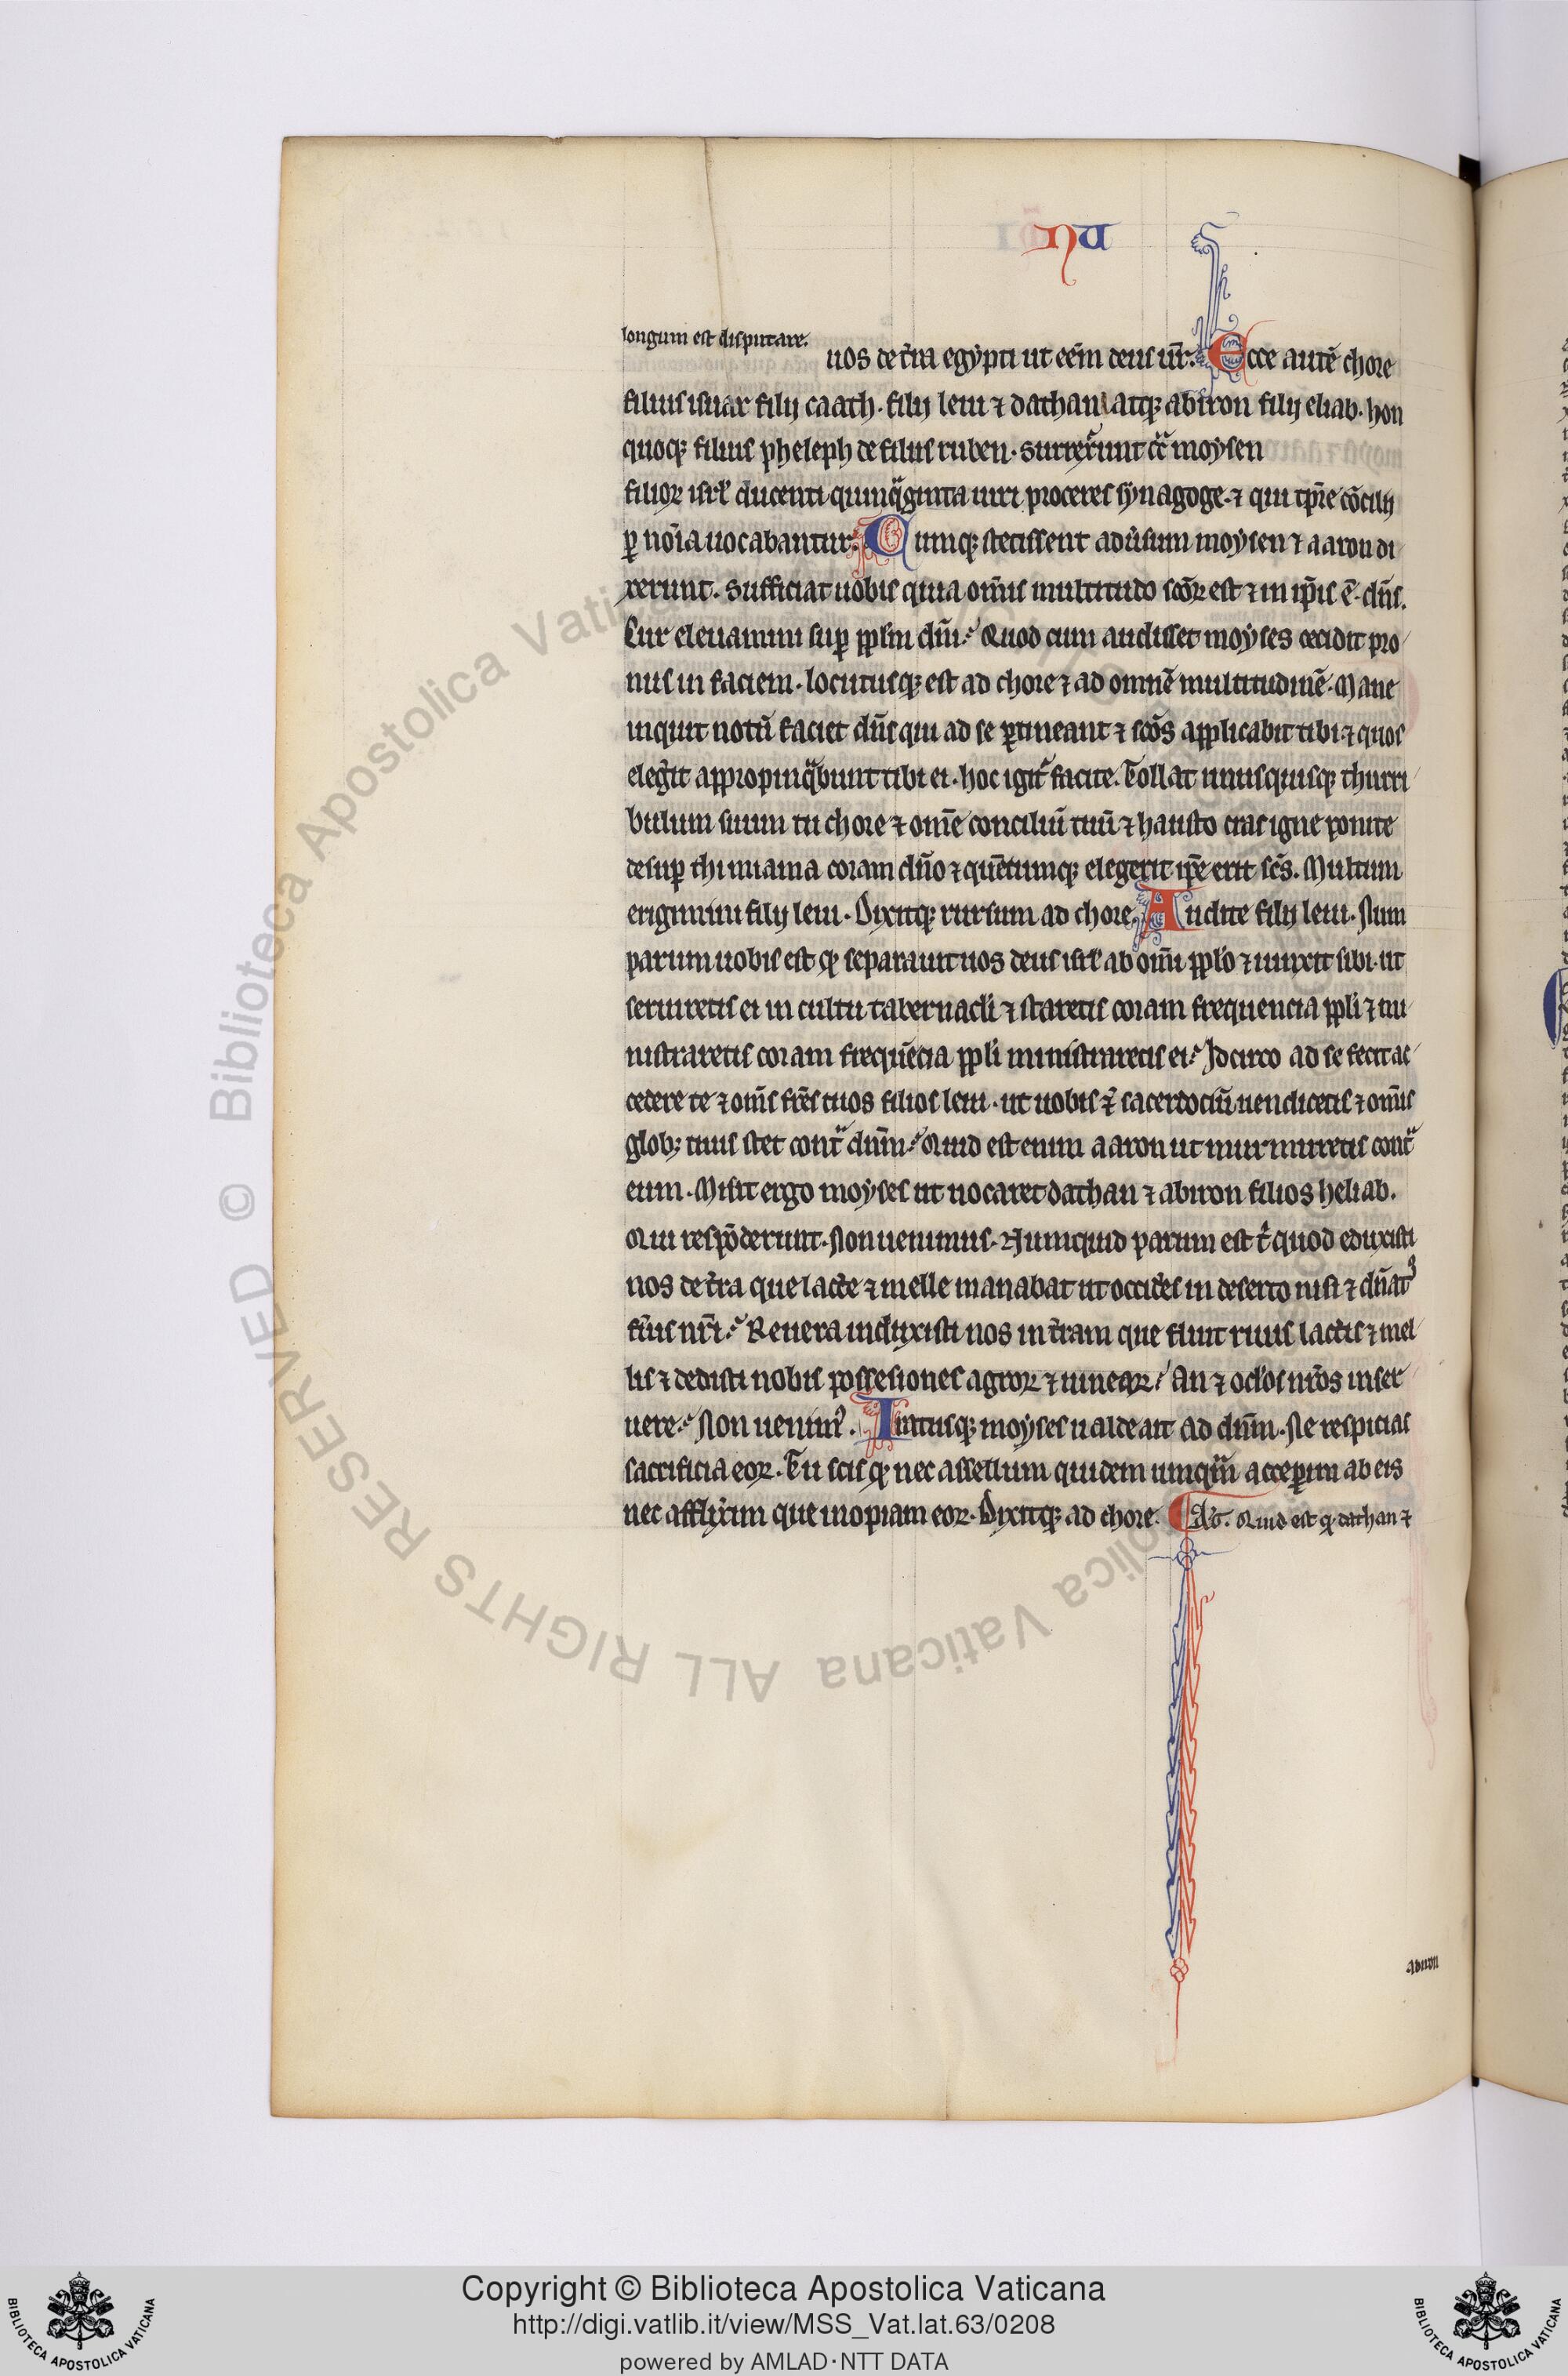 NU
longum est disputare.
uos de t̄ra egypti ut eēm deus ur̄. Ecce autē chore
filius isuar filij caath. filij leui ⁊ dathan atqꝫ abiron filij eliab. hon
quoqꝫ filius pheleph de filiis ruben. surrex̄unt cͣ moysen
filioꝝ isrl̓ ducenti quinqͣginta uiri proceres synagoge. ⁊ qui tp̄re cōcilij
ꝑ noīa uocabantur. Cumqꝫ stetissent adūsum moysen ⁊ aaron di
xerunt. Sufficiat uobis quia om̄is multitudo sc̄oꝝ est ⁊ in ip̄is ē. dn̄s.
Cur eleuamini suꝑ ppl̄m dn̄i. Quod cum audisset moyses cecidit pro
nus in faciem. locutusqꝫ est ad chore ⁊ ad omnē multitudinē. Mane
inquit notū faciet dn̄s qui ad se ꝑtineant ⁊ sc̄os applicabit tibi ⁊ quos
eleg̓it appropinqͣbunt tibi ei. hoc igit̓ facite. Tollat unusquisqꝫ thurri
bulum suum tu chore ⁊ om̄e conciliū tuū ⁊ hausto cras igne ponite
desuꝑ thimiama coram dn̄o ⁊ quēcumqꝫ elegerit ip̄e erit sc̄s. Multum
erigimini filij leui. Dixitqꝫ rursum ad chore Audite filij leui. Num
parum uobis est ꝙ separauit uos deus isrl̓ ab om̄i ppl̓o ⁊ iunxit sibi. ut
seruiretis ei in cultu tabernacl̓i ⁊ staretis coram frequencia ppl̓i ⁊ mi
nistraretis coram frequēcia ppl̓i ministraretis ei. Idcirco ad se fecit ac
cedere te ⁊ om̄s fr̄es tuos filios leui. ut uobis ⁊ sacerdociū uendicetis ⁊ om̄is
globꝫ tuus stet contͣ dn̄m. Quid est enim aaron ut murmuretis contͣ
eum. Misit ergo moyses ut uocaret dathan ⁊ abiron filios heliab.
Qui respōderunt. Non uenimus. Numquid parum est t̓ quod eduxisti
nos de t̄ra que lacte ⁊ melle manabat ut occid̓es in deserto nisi ⁊ dn̄at᷒
fu̓is nr̄i. Reuera induxisti nos in t̄ram que fluit riuis lactis ⁊ mel
lis ⁊ dedisti nobis possesiones agroꝝ ⁊ uineaꝝ. An ⁊ oc̓los nr̄os uis er
uere. Non uenim᷒. Iratusqꝫ moyses ualde ait ad dn̄m. Ne respicias
sacrificia eoꝝ. Tu scis ꝙ nec assellum quidem umqͣm acceꝑim ab eis
nec afflix̓im que inopiam eoꝝ. Dixitqꝫ ad chore. Quid est ꝙ dathan ⁊
abiron
Copyright © Biblioteca Apostolica Vaticana
http://digi.vatlib.it/view/MSS_Vat.lat.63/0208
powered by AMLAD·NTT DATA
BIBLIOTECA APOSTOLICA VATICANA
BIBLIOTECA APOSTOLICA VATICANA
© Biblioteca Apostolica Vaticana ALL RIGHTS RESERVED